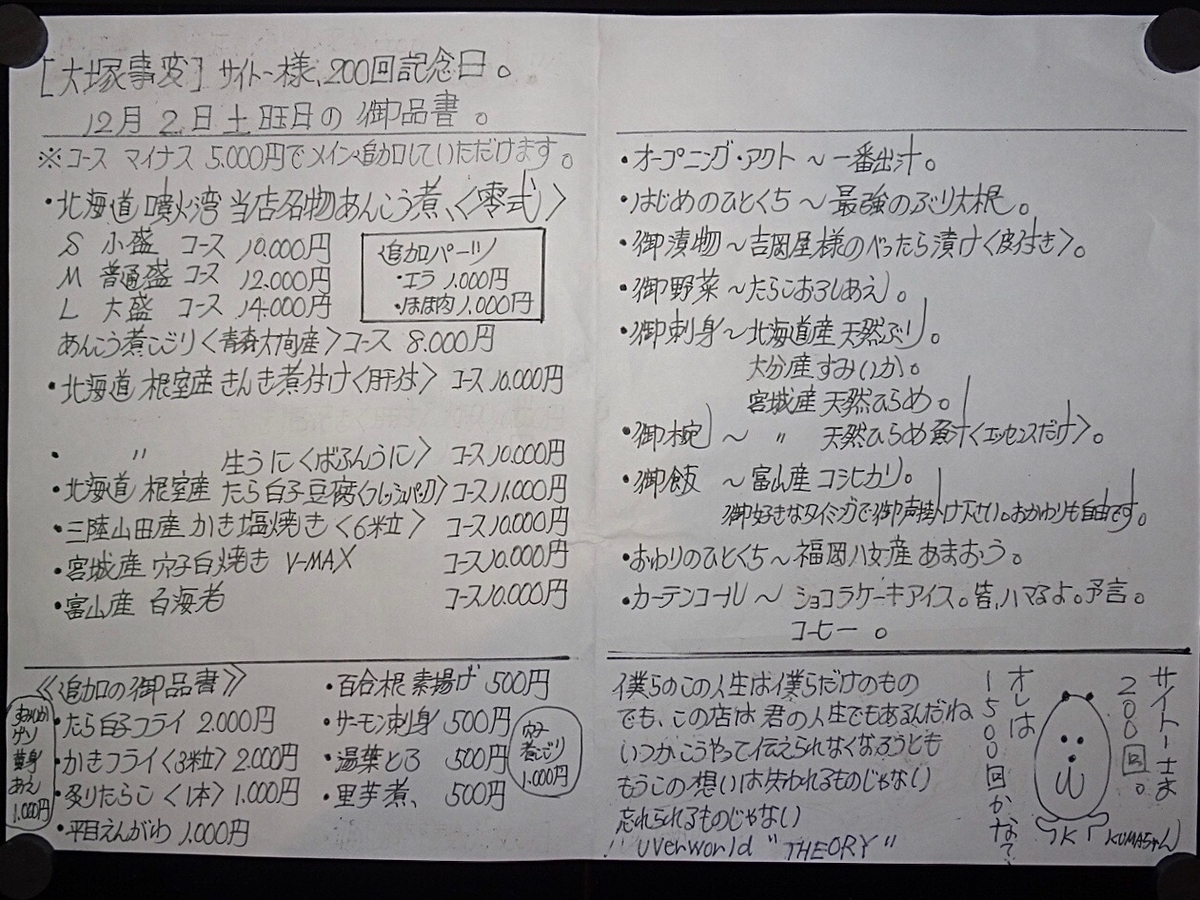 [大塚事変] サイト〜様、200回記念日。
12月2日土曜日の御品書。
※コース マイナス 5.000円でメイン追加していただけます。
・北海道噴火湾 当店名物あんこう煮、〈零式〉
S 小盛 コース 10.000円
M 普通盛 コース 12.000円
L 大盛 コース 14.000円
追加パーツ
・エラ 1.000円
・ほほ肉 1.000円
あんこう煮こごり〈青森大間産〉コース 8.000円
・北海道 根室産 きんき煮付け〈肝付〉 コース10.000円
・ 〃 生うに〈ばふんうに〉 コース10.000円
・北海道 根室産 たら白子豆腐〈フレッシュパック〉 コース11.000円
・三陸山田産 かき塩焼き〈6粒〉 コース10.000円
・宮城産 穴子白焼き V-MAX コース10.000円
・富山産 白海老 コース10.000円
《追加の御品書》
・たら白子フライ 2.000円
・かきフライ〈3粒〉 2.000円
・炙りたらこ〈1本〉 1.000円
・平目えんがわ 1.000円
黄身
あえ
1.000円
・百合根 素揚げ 500円
・サーモン刺身 500円
・湯葉とろ 500円
・里芋煮、 500円
穴子
煮こごり
1.000円
・オープニング・アクト 〜 一番出汁。
・はじめのひとくち 〜 最強のぶり大根。
・御漬物 〜 吉岡屋様のべったら漬け〈皮付き〉。
・御野菜 〜 たらこおろしあえ。
・御刺身 〜 北海道産 天然ぶり。
大分産 すみいか。
宮城産 天然ひらめ。
・御椀 〜 〃 天然ひらめ 魚汁〈エッセンスだけ〉。
・御飯 〜 富山産 コシヒカリ。
御好きなタイミングで御声掛け下さい。おかわりも自由です。
・おわりのひとくち 〜 福岡八女産 あまおう。
・カーテンコール 〜 ショコラケーキアイス。皆、ハマるよ。予言。
コーヒー。
僕らのこの人生は僕らだけのもの
でも、この店は 君の人生でもあるんだね
いつか、こうやって伝えられなくなろうとも
もうこの想いは失われるものじゃない
忘れられるものじゃない
!! UVerworld "THEORY"
サイトーさま
200回。
オレは
1500回かな?
KUMAちゃん